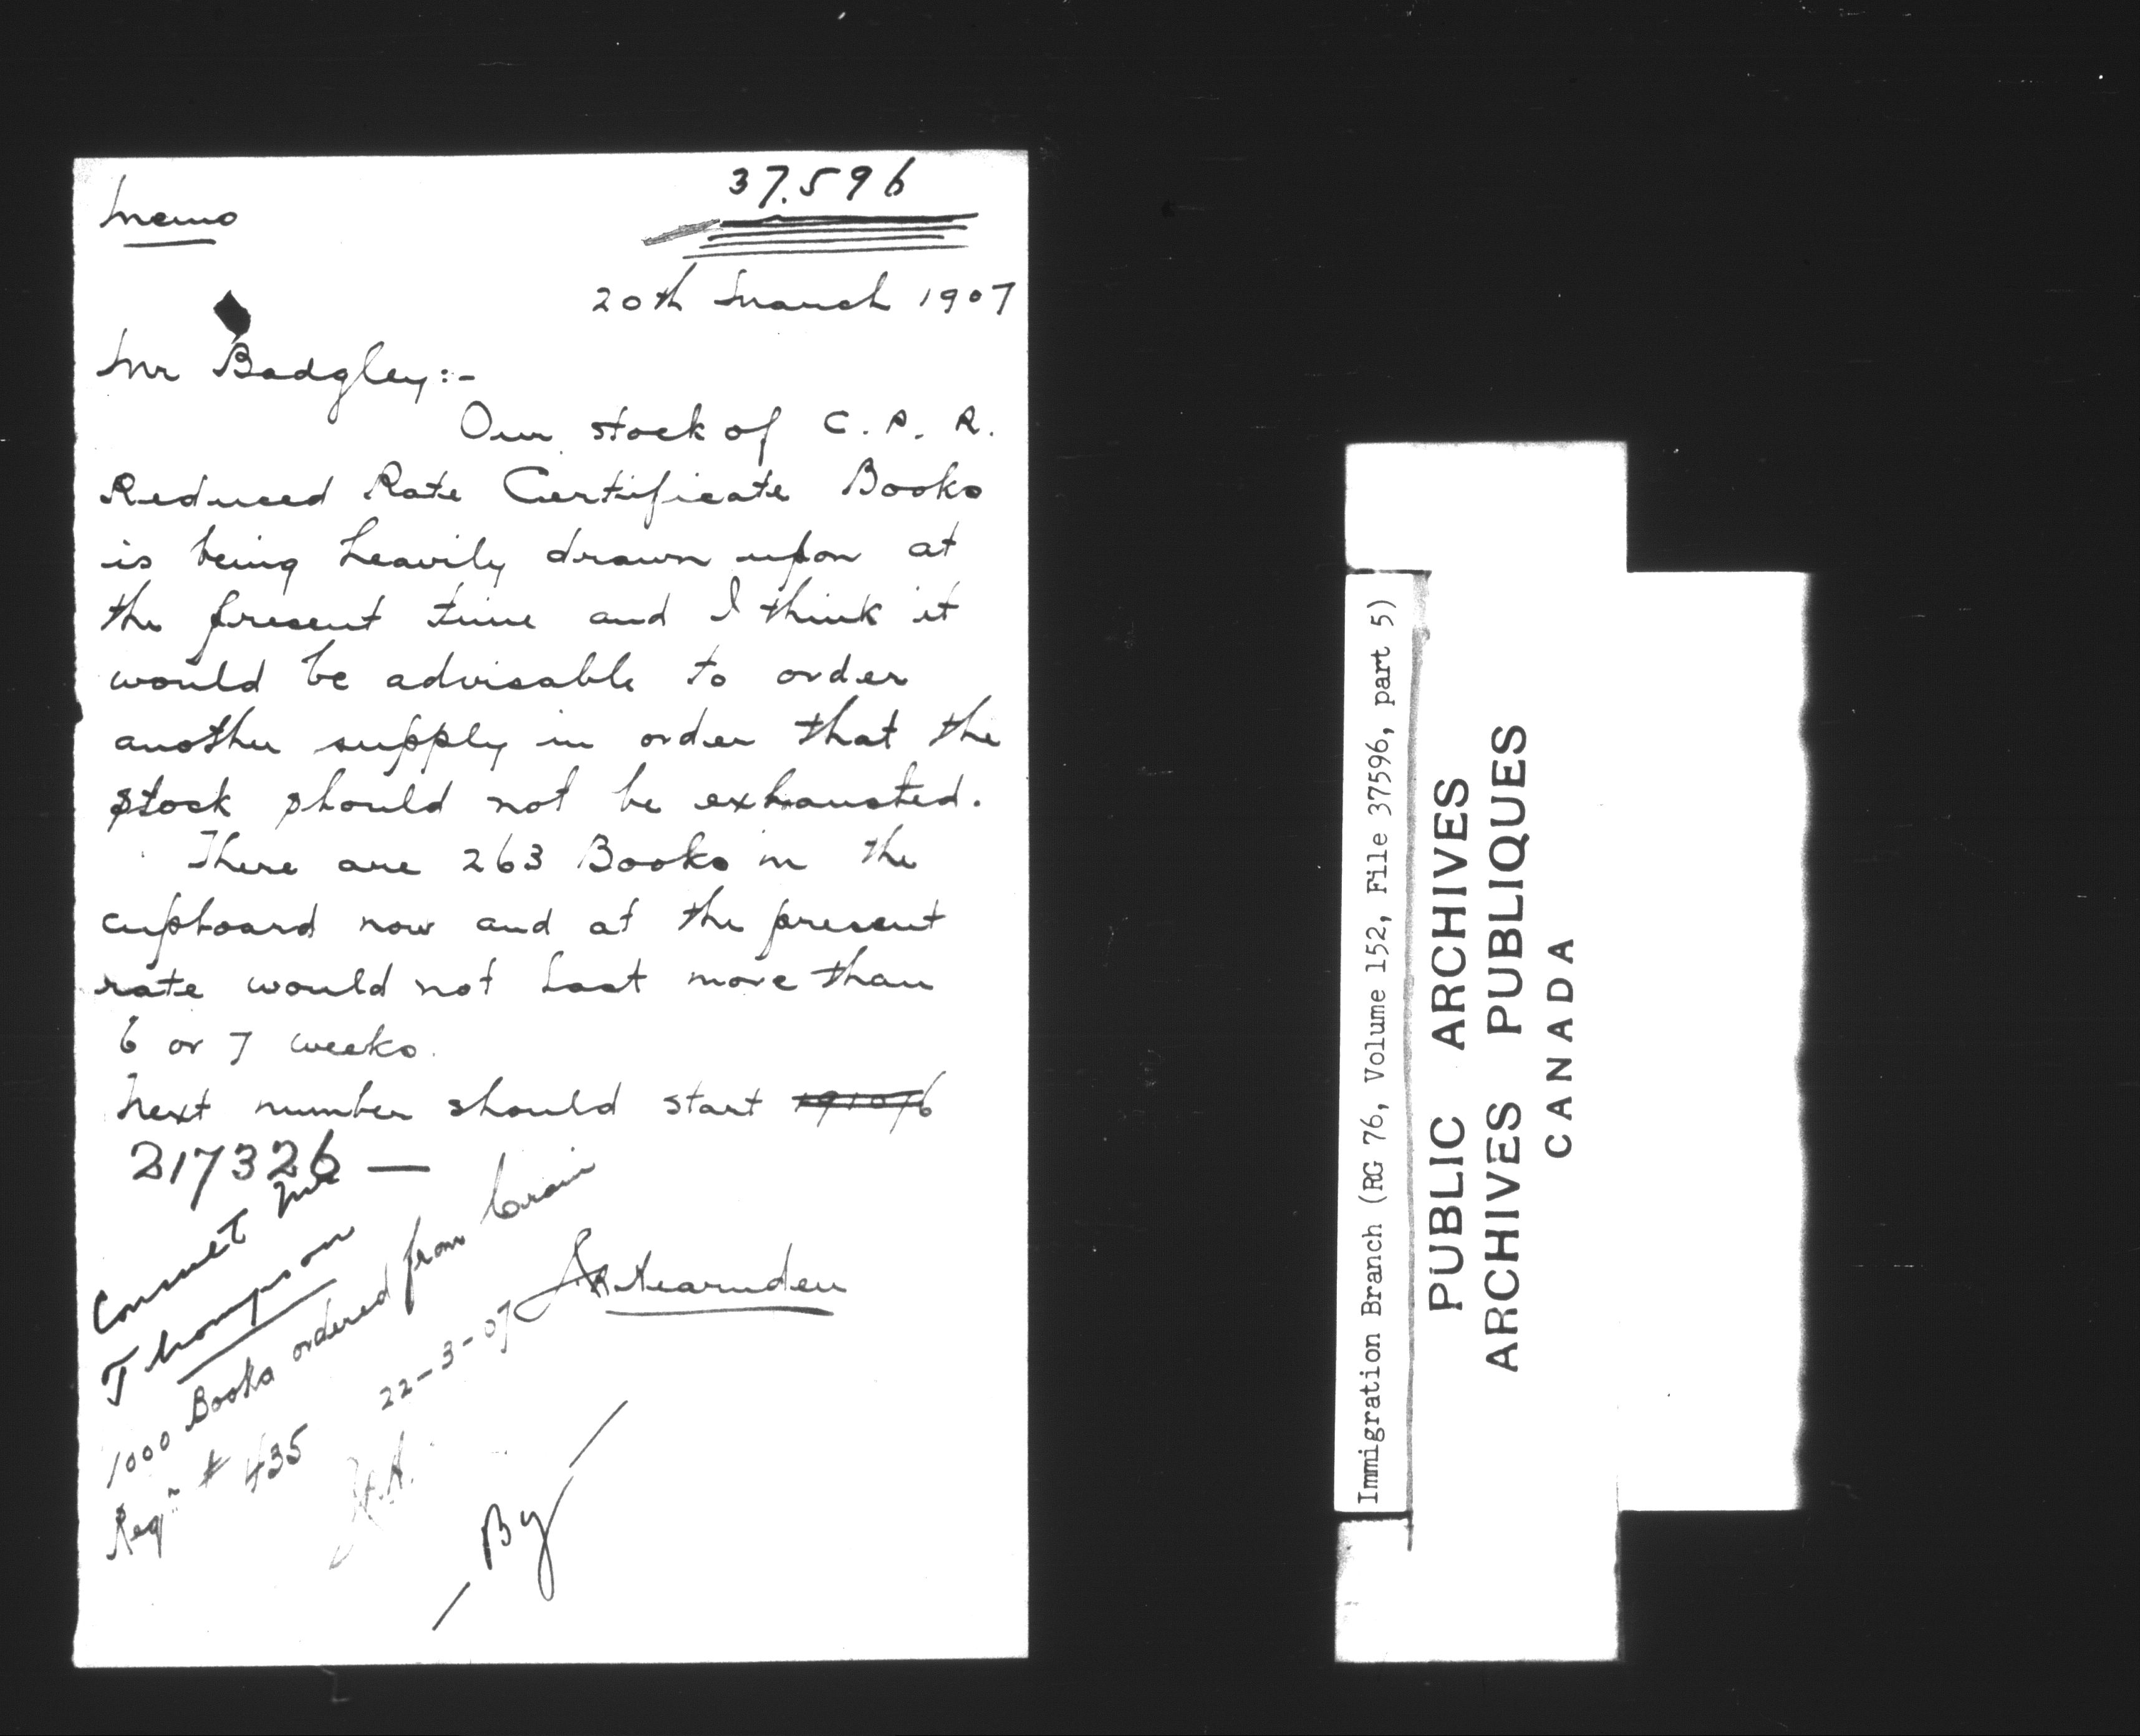 37.596
Memo
20th March 1907
Mr Badgley:-
Our stock of C.P.R.
Reduced Rate Certificate Books
is being heavily drawn upon at
the present time and I think it
would be advisable to order
another supply in order that the
stock should not be exhausted.
There are 263 Books in the
cupboard now and at the present
rate would not last more than
6 or 7 weeks.
Next number should start
217326 —
Consult
Thompson
1000 Books ordered from Crain
Reqn # 435
22-3-07
By
Immigration Branch (RG 76, Volume 152, File 37596, part 5)
PUBLIC ARCHIVES
ARCHIVES PUBLIQUES
CANADA